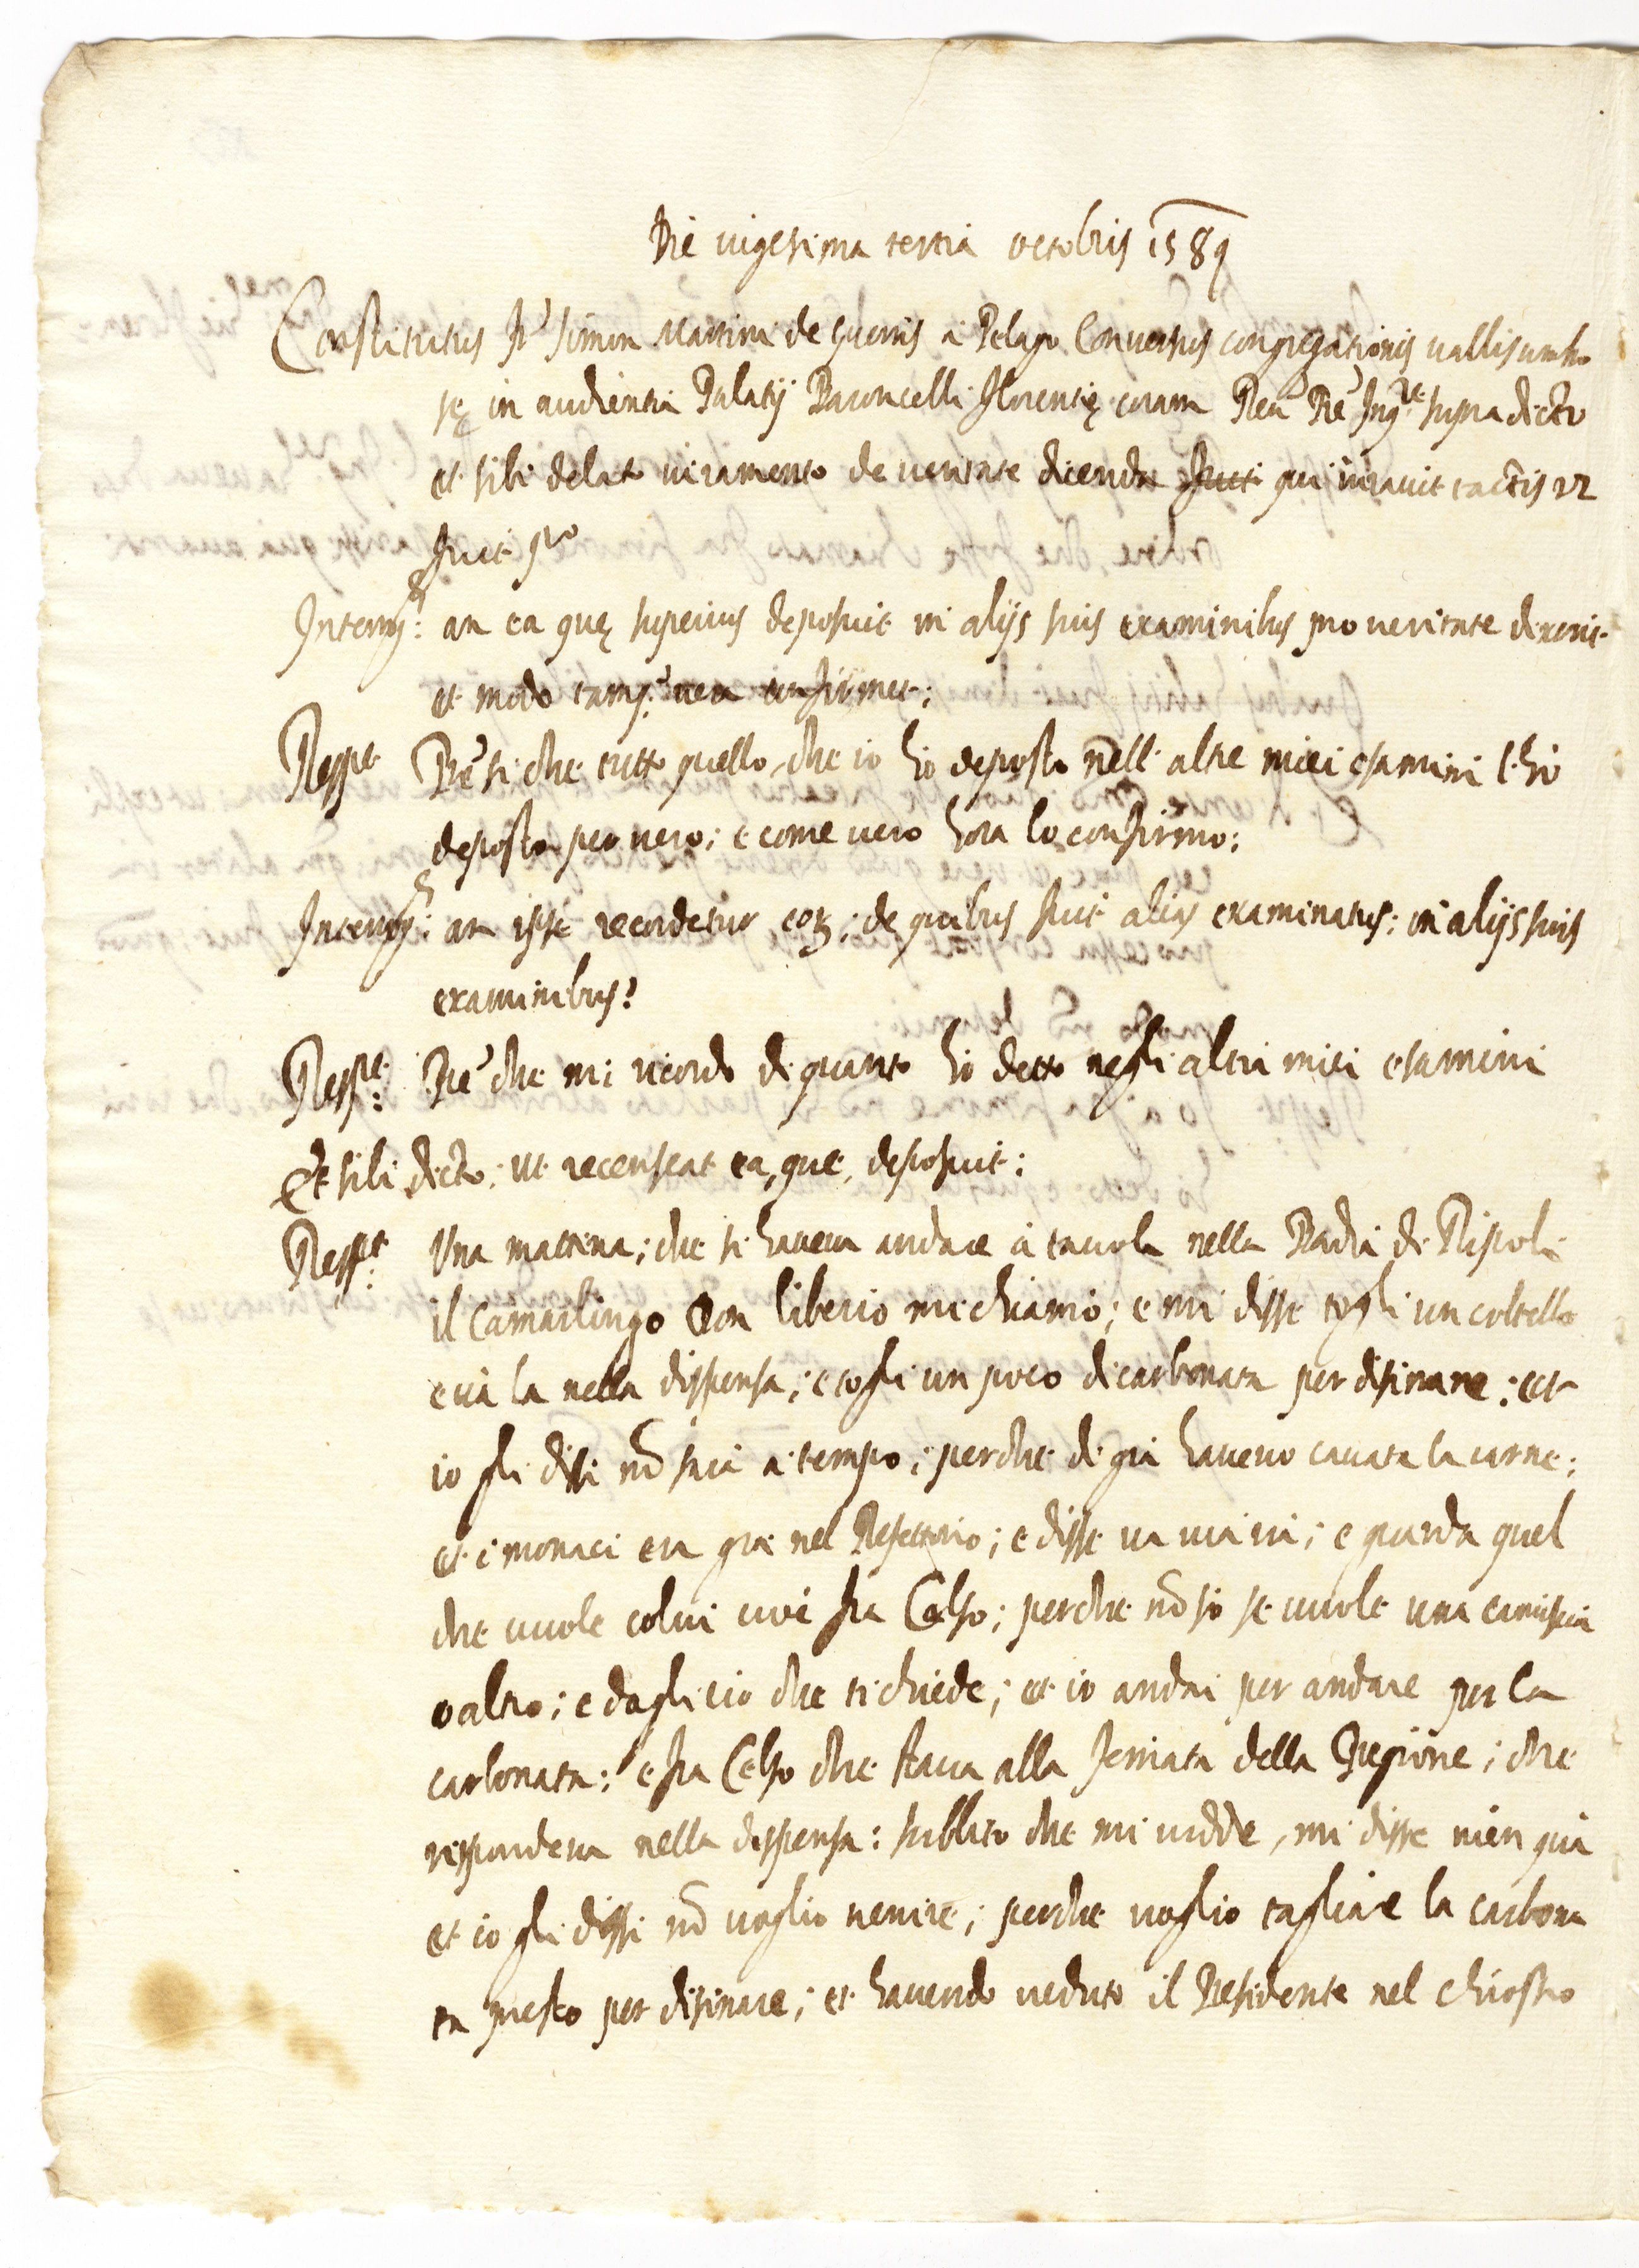 Die uigesima tertia octobris 1589
Constitutus fr Simon Martini de Guerris a Pelago Conuersus congregationis uallisumbro
sę in audientia Palatij Baroncelli Florentię coram Reu Pre Inqre supradicto
et sibi delato iuramento de ueritate dicenda fuit qui iurauit tactis
fuit pro
Interrog: an ea quę superius deposuit in alijs suis examinibus pro ueritate dixerit
et modo tamq: uera confirmet;
Respt Pre si che tutto quello, che io hò deposto nell altre miei esamini l hò
deposto per uero; e come uero hora lo confirmo;
Interrog: an ipse recordetur eorum; de quibus fuit alias examinatus: in alijs suis
examinibus?
Respt: Pre che mi ricordo di quanto hò detto negli altri miei esamini
Et sibi dicto; ut recenseat ea, que, deposuit:
Respt: Una mattina; che si haueua andare à tauola nella Badia di Ripoli
il Camarlingo Don liberio mi chiamò; e mi disse togli un coltello
e uà la nella dispensa; e togli un poco di carbonata per disinare; et
io gli dissi nō sarà a tempo; perche di già haueuo cauata la carne;
et i monaci era già nel Refettorio; e disse ua uia; e guarda quel
che uuole colui fra Celso; perche nō sò se uuole una camiscia
o altro; e dagli ciò che ti chiede; et io andai per andare per la
carbonata; e fra Celso che staua alla ferriata della Pregione; che
rispondeua nella dispensa: subbito che mi uidde, mi disse uien quà
et io gli dissi nō uoglio uenire; perche uoglio tagliare la carbona
ta presto per disinare; et hauendo ueduto il Presidente nel chiostro